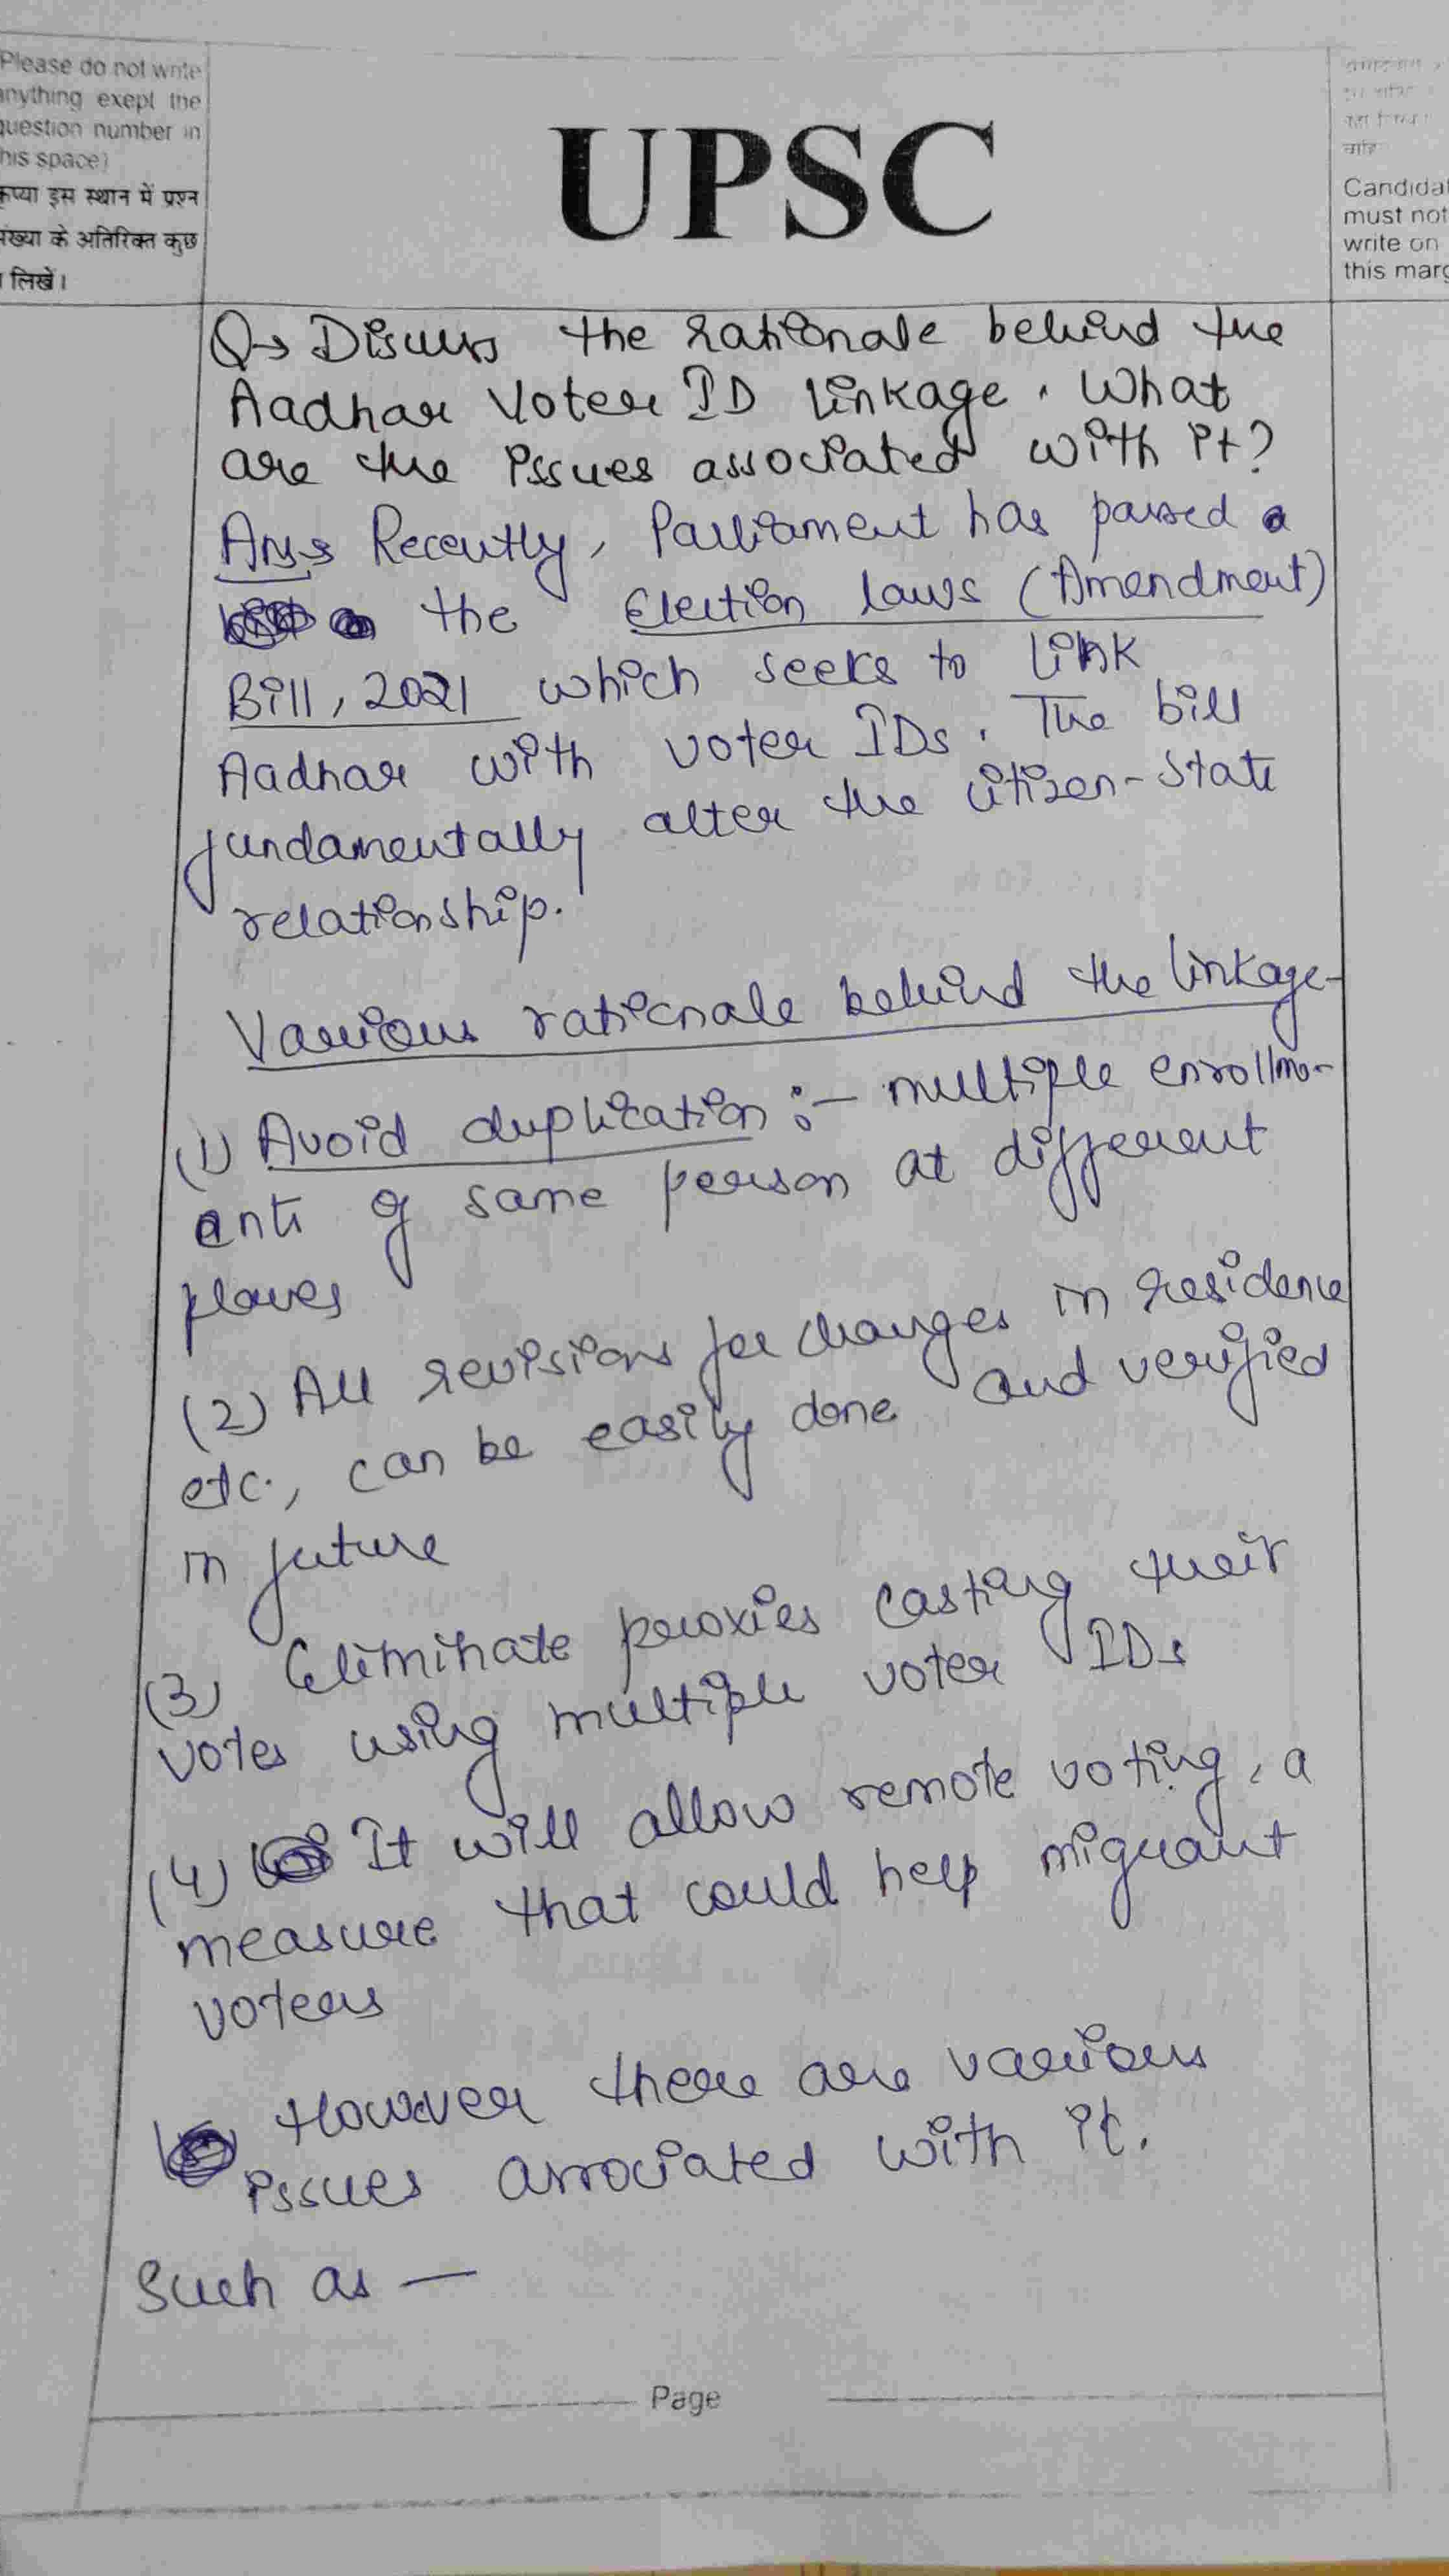 Please do not write
anything exept the
question number in
this space)
कृप्या इस स्थान में प्रश्न
संख्या के अतिरिक्त कुछ
न लिखें।
UPSC
Candidat
must not
write on
this marg
Q→ Discuss the rationale behind the
Aadhar Voter ID linkage. What
are the issues associated with it?
Ans→ Recently, Parliament has passed a
the Election laws (Amendment)
Bill, 2021 which seeks to link
Aadhar with voter IDs. The bill
fundamentally alter the citizen-State
relationship.
Various rationale behind the linkage-
(1) Avoid duplication :- multiple enrollme-
ents of same person at different
places
(2) All revisions for changes in residence
etc., can be easily done and verified
in future
(3) Eliminate proxies casting their
votes using multiple voter IDs
(4) It will allow remote voting, a
measure that could help migrant
voters
However there are various
issues associated with it.
Such as —
Page